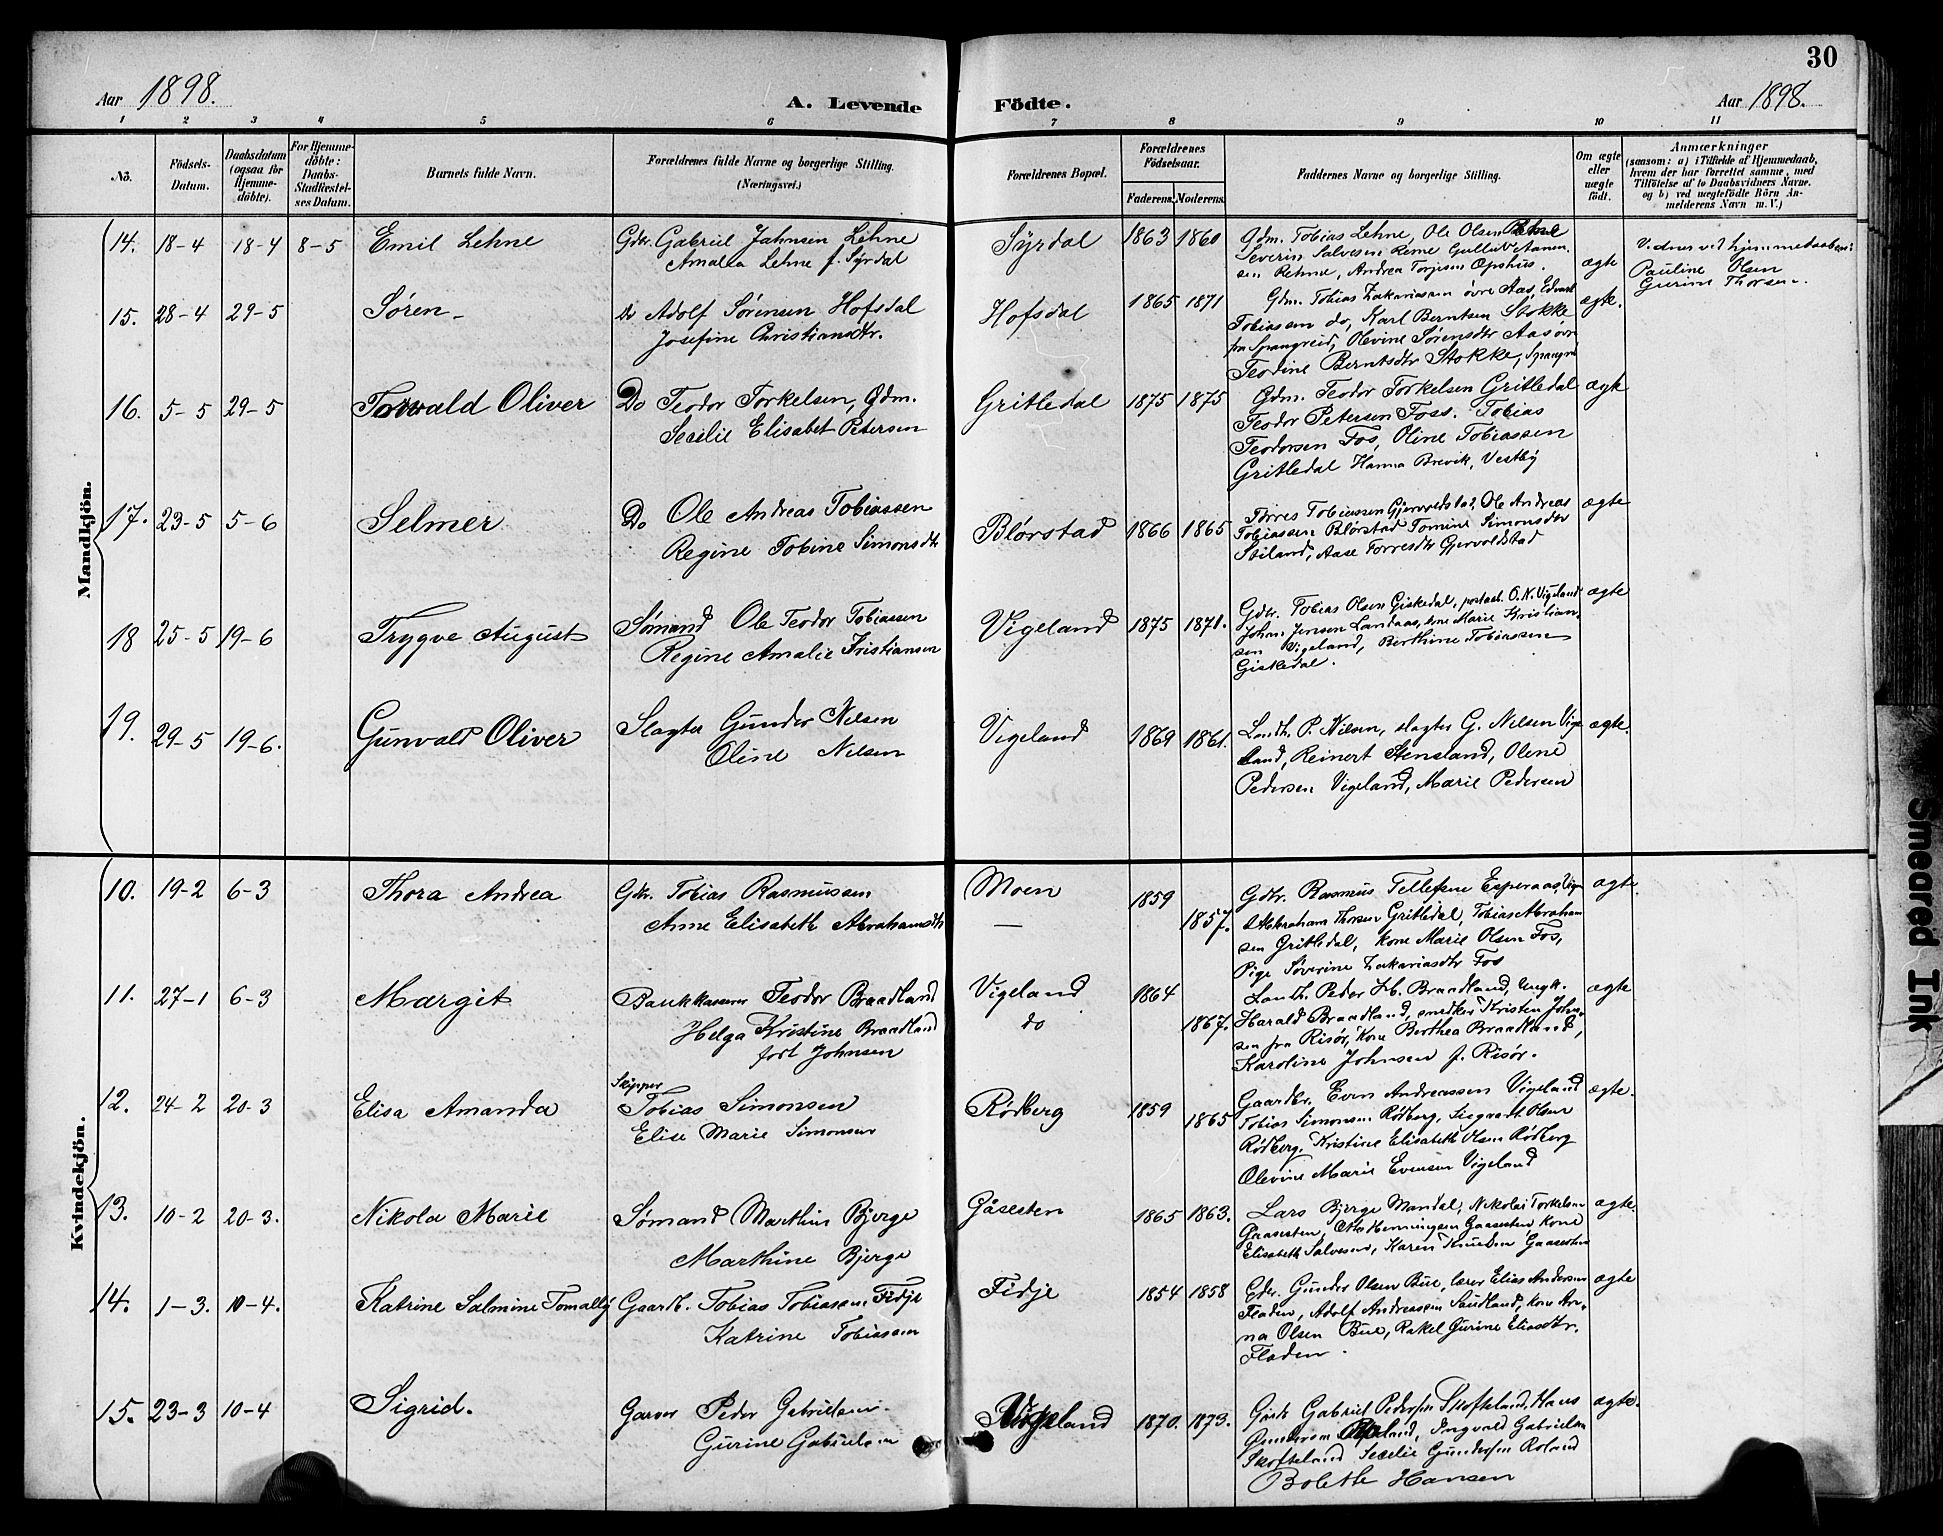 30
Aar 1898.
A. Levende Födte.
Aar 1898.
1 2 3 4 5 6 7 8 9 10 11
Nö.
Födsels-Datum.
Daabsdatum (ogsaa for Hjemme-döbte).
For Hjemme-döbte: Daabs-Stadfæstel-ses Datum.
Barnets fulde Navn.
Forældrenes fulde Navne og borgerlige Stilling.
(Næringsvei.)
Forældrenes Bopæl.
Forældrenes Födselsaar.
Faderens. Moderens.
Faddernes Navne og borgerlige Stilling.
Om ægte eller uægte født.
Anmærkninger
(saasom: a) i Tilfælde af Hjemmedaab,
hvem der har forrettet samme, med
Tilföielse af to Daabsvidners Navne,
og b) ved uægtefödte Börn An-
melderens Navn m. V.)
Mandkjön.
14. 18-4 18-4 8-5 Emil Lehne
Gdbr. Gabriel Jahnsen Lehne
Amalia Lehne f. Syrdal
Syrdal 1863 1860
Gdm. Tobias Lehne, Ole Olsen Rehne
Severin Salvesen Rene Gulluv Aanen-
sen Rehme, Andrea Torjesen Opshus.
ægte
Vidner ved hjemmedaaben:
Pauline Olsen
Gurine Thorsen.
15. 28-4 29-5 Søren
Do Adolf Sørensen Hofsdal
Josefine Christiansdtr.
Hofsdal 1865 1871
Gdm. Tobias Zakariassen øvre Aas, Edvart
Tobiassen do, Karl Berntsen Stokke
fra Spangreid, Olevine Sørensdtr Aas øvre
Teodine Berntsdtr Stokke, Spangrei
ægte.
16. 5-5 29-5 Torvald Oliver
Do Teodor Torkelsen, Gdm.
Secilie Elisabet Petersen
Gritledal 1875 1875
Gdm. Teodor Torkelsen Gritledal
Teodor Petersen Foss. Tobias
Teodorsen Fos, Oline Tobiassen
Gritledal Hanna Brevik, Vestby
ægte
17. 23-5 5-6 Selmer
Do Ole Andreas Tobiassen
Regine Tobine Simonsdtr
Blørstad 1866 1865
Tørres Tobiassen Gjervoldstad, Ole Andreas
Tobiassen Blørstad Tomine Simonsdtr
Stiland, Aase Torresdtr Gjervoldstad
ægte
18 25-5 19-6 Trygve August
Sømand Ole Teodor Tobiassen
Regine Amalie Kristiansen
Vigeland 1875 1871.
Gdbr. Tobias Olsen Giskedal, postaab. O. N. Vigeland
Johan Jensen Landaas, kone Marie Kristian-
sen Vigeland, Berthine Tobiassen
Giskedal.
ægte
19. 29-5 19-6. Gunvald Oliver
Slagter Gunder Nilsen
Oline Nilsen
Vigeland 1869 1861.
Landh. P. Nilsen, slagter G. Nilsen Vige-
land, Reinert Stensland, Olene
Pedersen Vigeland, Marie Pedersen
ægte.
Kvindekjön.
10. 19-2 6-3 Thora Andrea
Gdbr. Tobias Rasmussen
Anne Elisabeth Abrahamsdtr
Moen
—
1859 1857.
Gdbr. Rasmus Tellefsen Esperaas, Vige
Abraham Thorsen Gritledal, Tobias Abraham
sen Gritledal, kone Marie Olsen Fos,
Pige Søverine Zakariasdtr Fos
ægte.
11. 27-1 6-3 Margit
Bankkasserer Teodor Braadland
Helga Kristine Braadland
født Johnsen
Vigeland
do
1864 1867.
Landh. Peder H. Braadland, ungk.
Harald Braadland, snedker Kristen John-
sen fra Risör, Kone Berthea Braadland,
Karoline Johnsen f. Risör.
ægte
12. 24-2 20-3 Elisa Amanda
Skipper
Tobias Simonsen
Elise Marie Simonsen
Rödberg 1859 1865
Gaardbr. Even Andreassen Vigeland
Tobias Simonsen Rödberg, Siegvart Olsen
Rödberg, Kristine Elisabeth Olsen Rödberg
Olevine Marie Evensen Vigeland
ægte.
13. 10-2 20-3. Nikola Marie
Sømand Marthin Bjerge
Marthine Bjerge
Gåseсten 1865 1863.
Lars Bjerge Mandal, Nikolai Torkelsen
Gaasesten, Henningsen Gaasesten, kone
Elisabeth Salvesen, Karen Knudsen Gaasesten
ægte
14. 1-3. 10-4. Katrine Salmine Tomally
Gaardb. Tobias Tobiassen Fidje
Katrine Tobiassen
Fidje 1854 1858
Gdbr. Gunder Olsen Bue, lærer Elias Andersen
Fladen, Adolf Andreassen Saudland, kone An-
na Olsen Bue, Rakel Gurine Eliasdtr.
Fladen.
ægte
15. 23-3 10-4 Sigrid.
Garver Peder Gabrielsen
Gurine Gabrielsen
Vigeland 1870. 1873.
Gdbr Gabriel Pedersen Skofteland, Hans
Gundersen Roland, Ingvald Gabrielsen
Skofteland Secilie Gundersen Roland
Bolette Hansen
ægte.
Smeared Ink